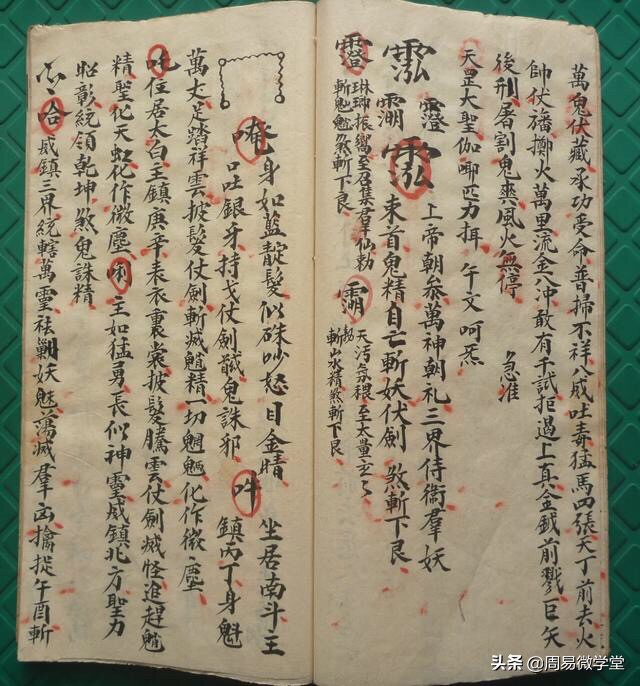 萬鬼伏藏承功受命普掃不祥八威吐毒猛馬四張天丁前去火
帥伏旛擲火萬里流金八沖敢有干試拒遏上真金鉞前戮巨矢
後刑屠割鬼爽風火無停 急准
天罡大聖伽唧匹力揖 午文呵炁
上帝朝参萬神朝礼三界侍衛羣妖
束首鬼精自亡斬妖伏劍 煞斬下艮
琳瑯振嚮至召集羣仙勅
斬鬼魁煞斬下艮
天汚氛穢至太量玄々
勅斬山水精煞斬下艮
唵 身如藍靛髮似硃吵怒目金睛
吐銀牙持戈仗劍馘鬼誅邪 吽 坐居南斗主
鎮丙丁身魁
萬丈足踏祥雲披髮仗劍斬滅精一切魍魎化作微塵
吒 位居太白主鎮庚辛素衣裹裳披髮騰雲仗劍滅怪追趕
精聖化天虹化作微塵 唎 主如猛勇長似神靈威鎮北方聖力
昭彰統領乾坤煞鬼誅精
哈 威鎮三界統轄萬靈祛斬妖魅蕩滅羣凶擒捉午酉斬
头条 @周易微学堂